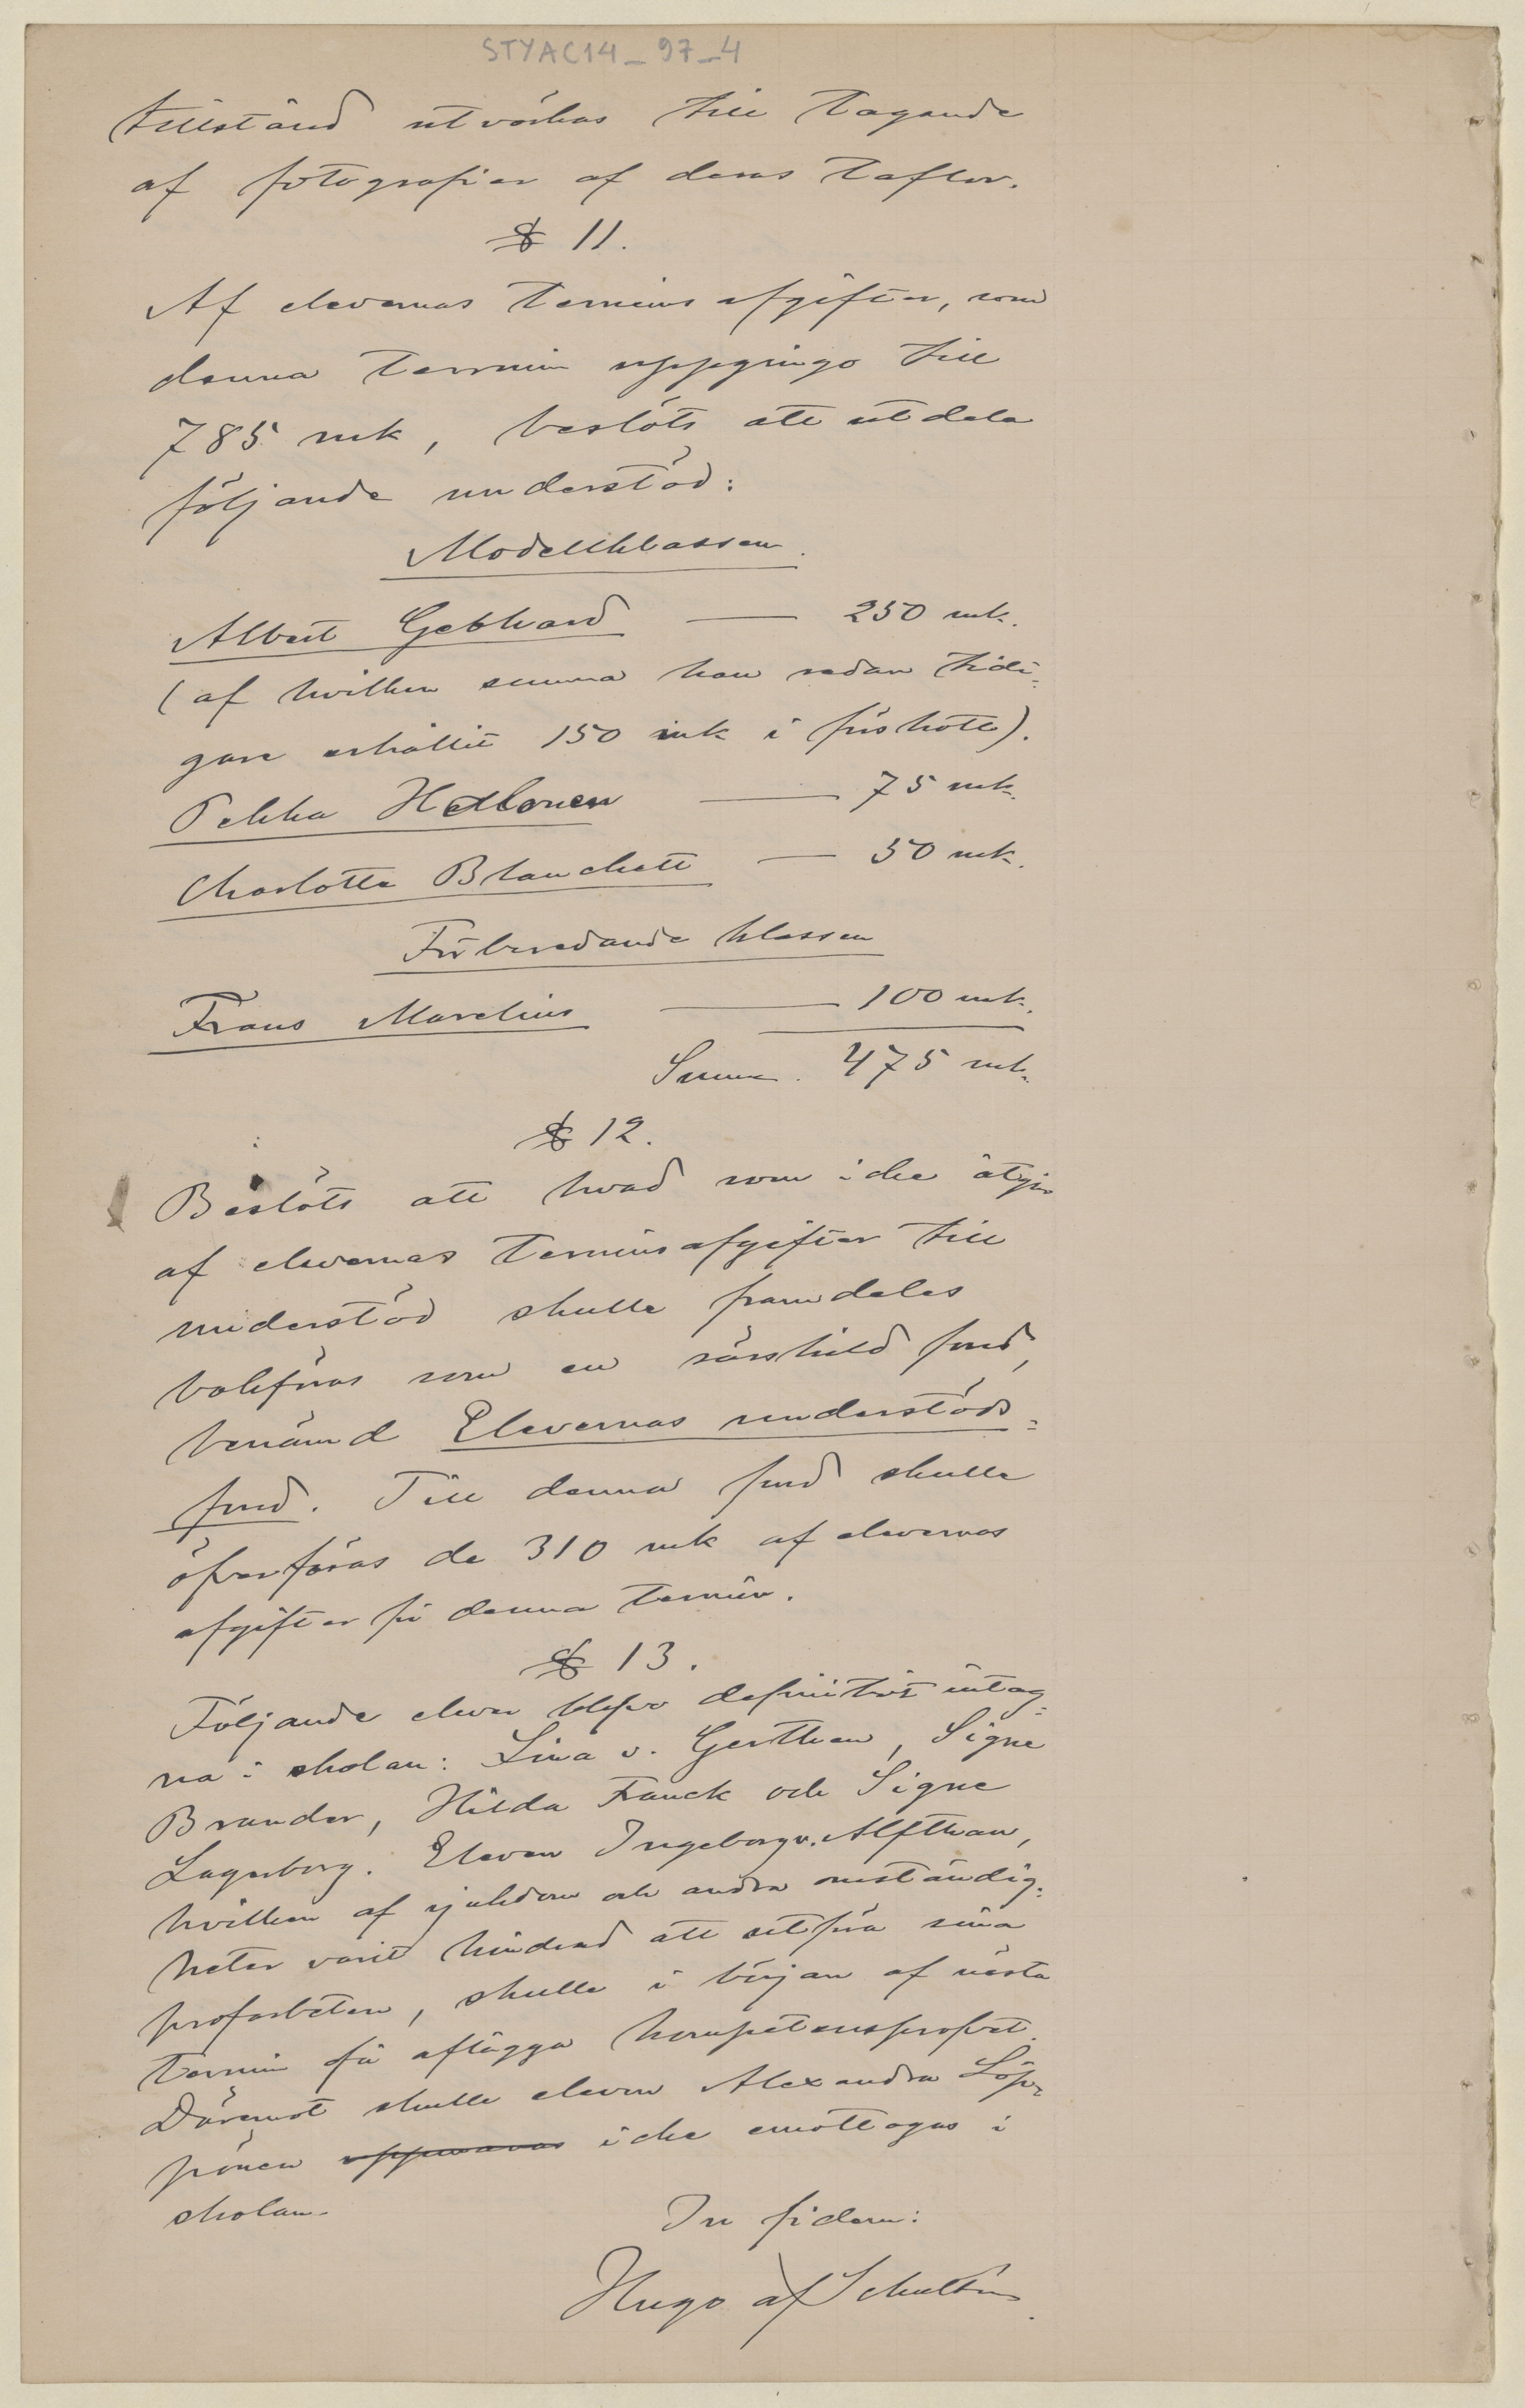 STYAC14_97_4
tillstånd utvärkas till tagande
af fotografier af deras taflor.
§ 11.
Af elevernas terminsafgifter, som
denna termin uppgingo till
785 mk, beslöts att utdela
följande understöd:
Modellklassen.
Albert Gebhard — 250 mk.
(af hvilken summa han redan tidi=
gare erhållit 150 mk i förskott).
Pekka Halonen — 75 mk.
Charlotta Blanchett — 50 mk.
Förberedande klassen
Frans Marelius — 100 mk.
Summa. 475 mk.
§ 12.
Beslöts att hvad som icke åtgår
af elevernas terminsafgifter till
understöd skulle framdeles
bokföras som en särskild fond,
benämd Elevernas understöds=
fond. Till denna fond skulle
öfverföras de 310 mk af elevernas
afgifter för denna termin.
§ 13.
Följande elever blefvo definitivt intag=
na i skolan: Lina v. Gerthen, Signe
Brander, Hilda Franck och Signe
Lagerborg. Eleven Ingeborg v. Alfthan,
hvilken af sjukdom och andra omständig=
heter varit hindrad att utföra sina
profarbeten, skulle i början af nästa
termin få aflägga kompetensprofvet.
Däremot skulle eleven Alexandra Löp=
pönen icke emottagas i
skolan.
In fidem:
Hugo af Schultén.